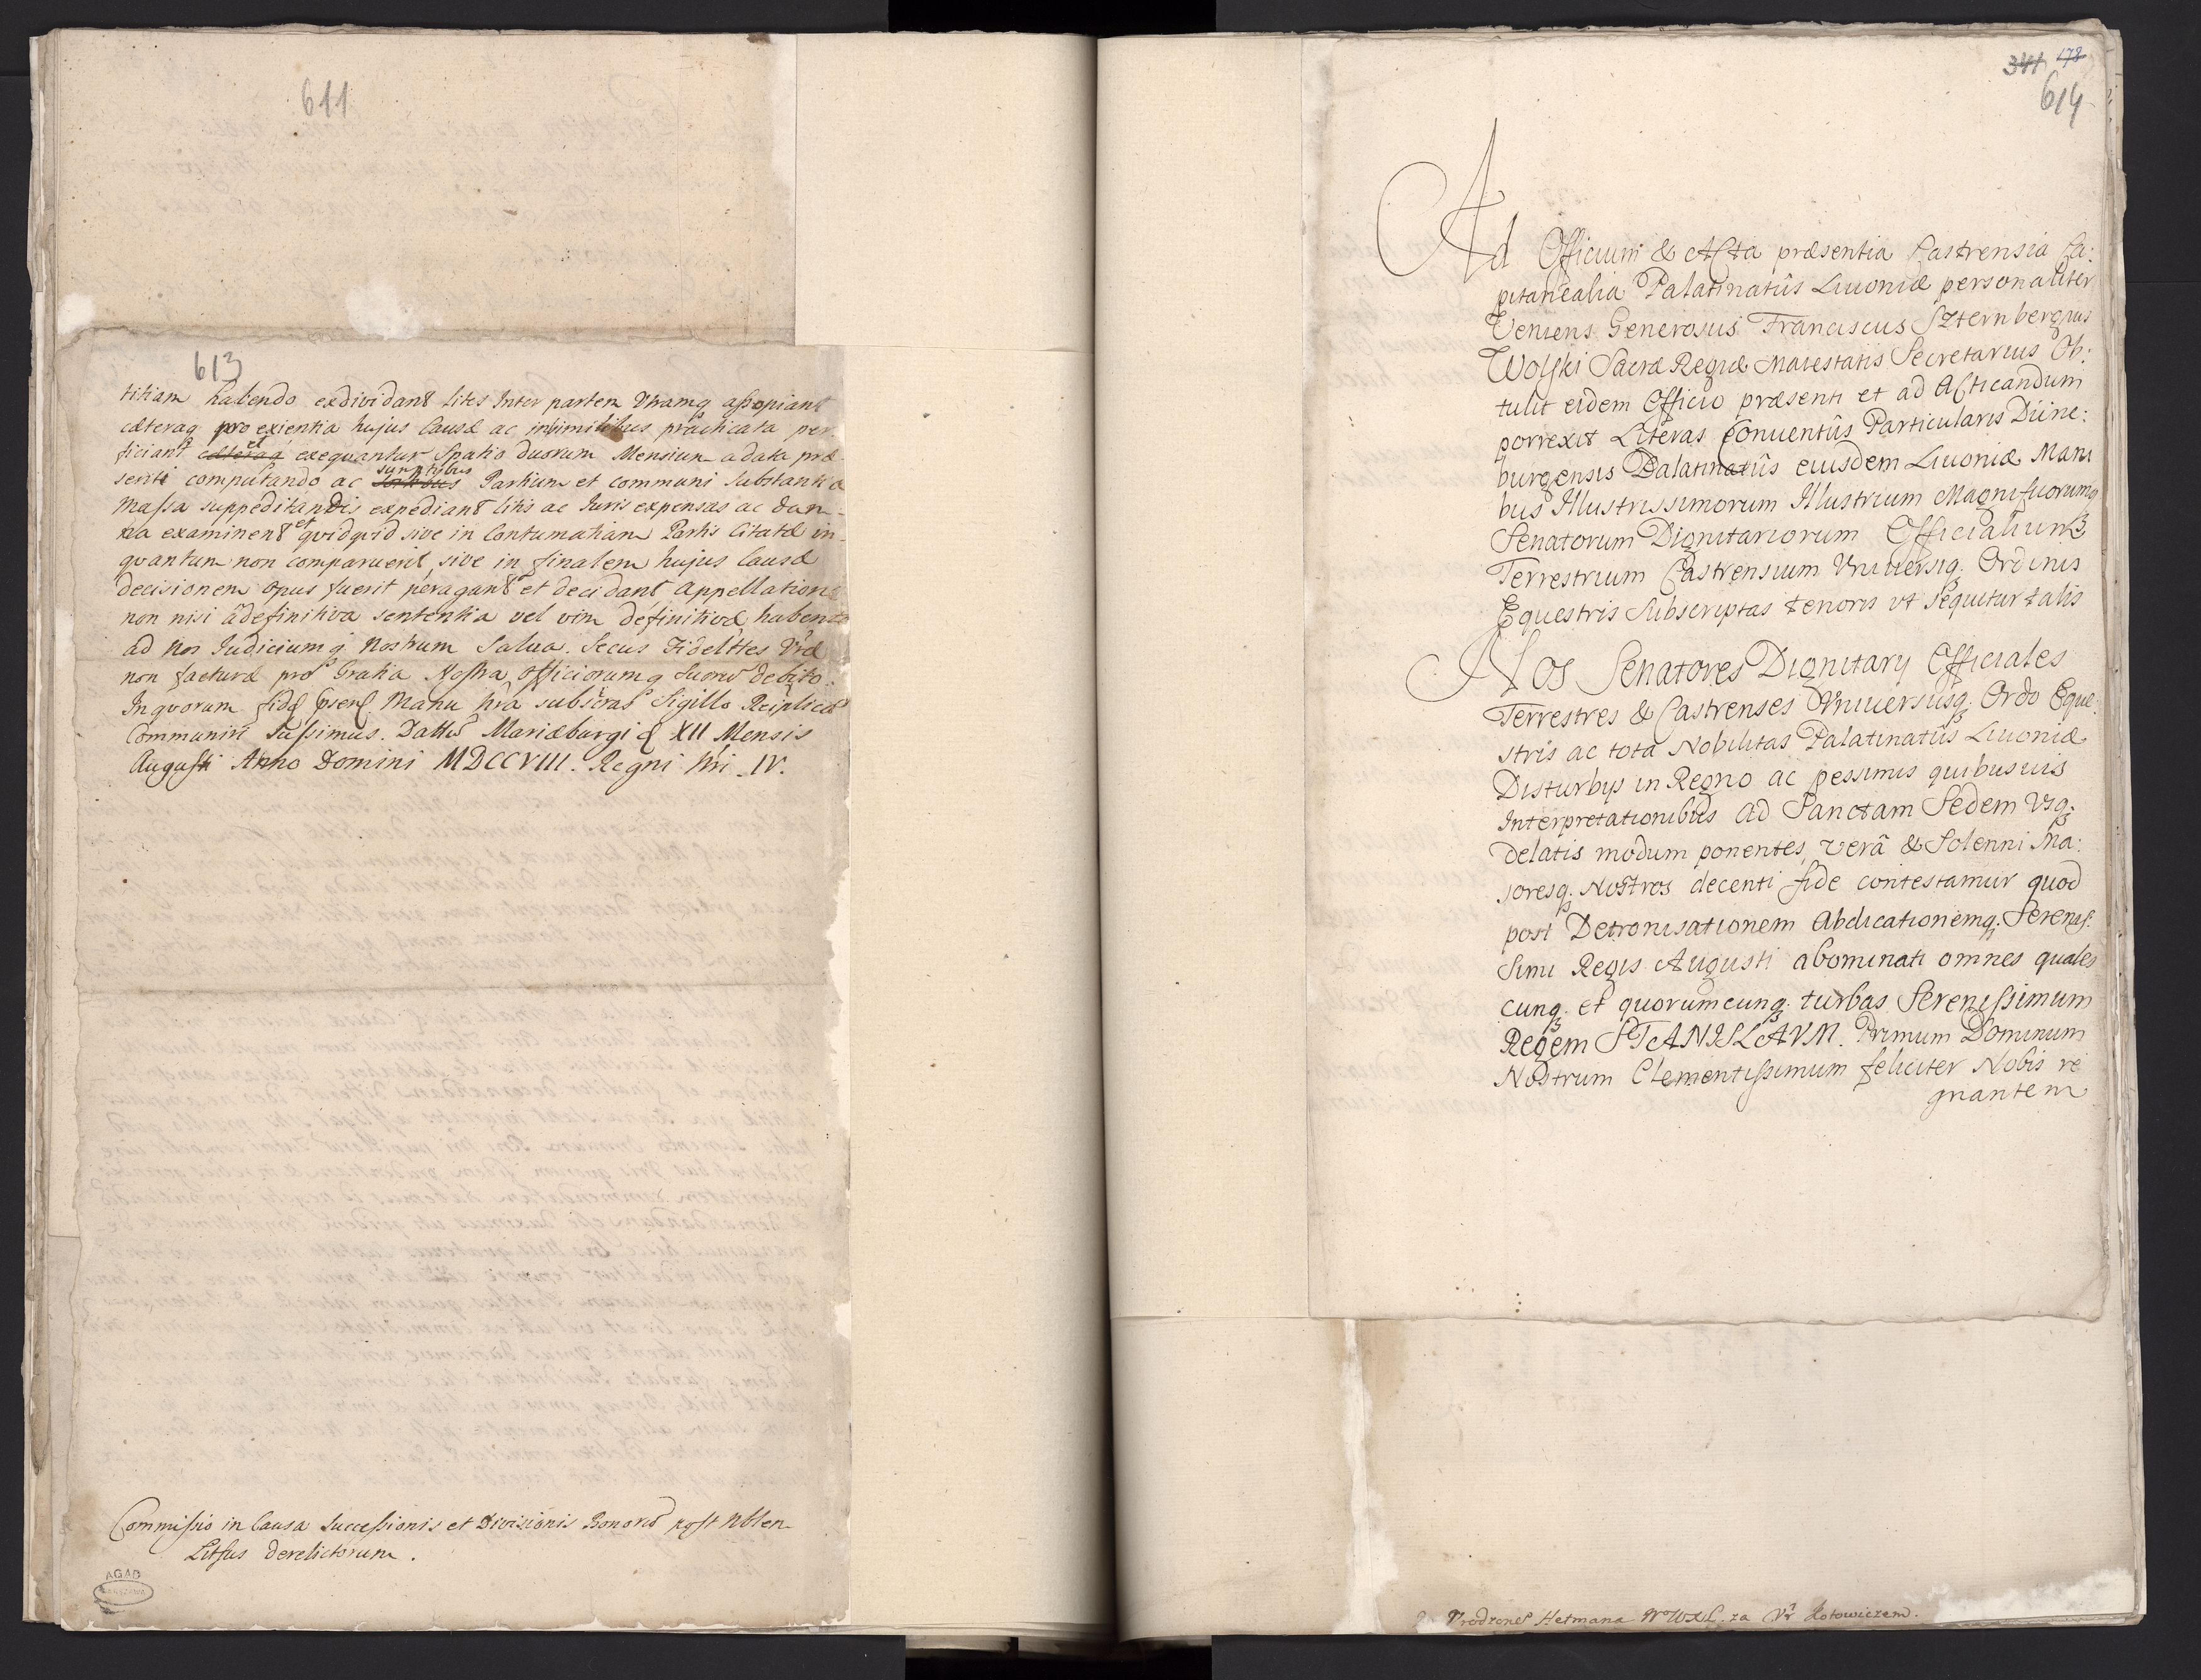 611
613
titiam habendo exdividant lites Inter partem Utramq assopiant
cæteraq pro exientia hujus Causæ ac insimilibus practicata per
ficiant cæteraq et exequantur Spatio duorum Mensium adata præ
senti computando ac sumptibus Partium et communi Substantia
Massa suppeditandis expediant litis ac Iuris expensas ac dam
na examinent et quidquid sive in Contumatiam Partis Citatæ in
quantum non comparuerit, sive in finalem hujus Causæ
decisionem opus fuerit peragant et decidant Appellatione
non nisi âdefinitiva sententia vel vim definitivæ habente
ad Nos Judiciumq Nostrum Salva. Secus Fidelittes Vræ
non facturæ pro Gratia Nostra, officiorumq Suorū debito.
Inquorum fidē psens Manu nra subscras Sigillo Reiplicæ
Communiri Jussimus. Datt Mariæburgi d XII Mensis
Augusti Anno Domini MDCCVIII. Regni Nri IV.
Commissio in Causa Successionis et Divisionis Bonorū post Nblem
Litfus derelictorum.
AGAD
WARSZAWA
341 178
614
Ad Officium & Acta præsentia Castrensia Ca:
pitanealia Palatinatûs Livoniæ personaliter
Veniens Generosus Franciscus Szternbergius
Wolski Sacræ Regiæ Maiestatis Secretarius Ob:
tulit eidem Officio præsenti et ad Acticandum
porrexit Literas Conventûs Particularis Düne:
burgensis Palatinatûs eiusdem Livoniæ Mani
bus Illustrissimorum Illustrium Magnificorumq
Senatorum Dignitariorum Officialium
Terrestrium Castrensium Vniversiq. Ordinis
Equestris Subscriptas tenoris vt sequitur talis
Nos Senatores Dignitarij Officiales
Terrestres & Castrenses Vniuersusq. Ordo Eque:
stris ac tota Nobilitas Palatinatûs Liuoniæ
Disturbijs in Regno ac pessimis quibusuis
Interpretationibus ad Sanctam Sedem Vsq.
Delatis modum ponentes, verâ & Solenni Ma:
joresq. Nostros decenti fide contestamur quod
post Detronisationem Abdicationemq. Serenis:
simi Regis Augusti abominati omnes quales
cunq. et quorumcunq. turbas Serenissimum
Regem STANISLAVM. Primum Dominum
Nostrum Clementissimum feliciter Nobis re
gnantem
Hetmana WoWXL. za Kotowiczem.